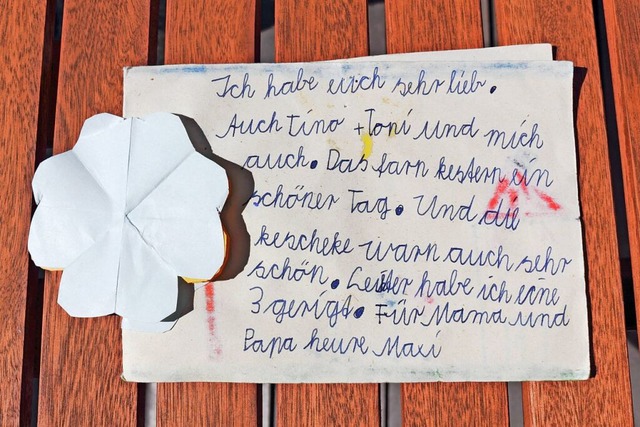 Ich habe euch sehr lieb.
Auch Tino + Toni und mich
auch. Das farn kestern ein
schöner Tag. Und die
kescheke warn auch sehr
schön. Leider habe ich eine
3 gerigt. Für Mama und
Papa heure Maxi